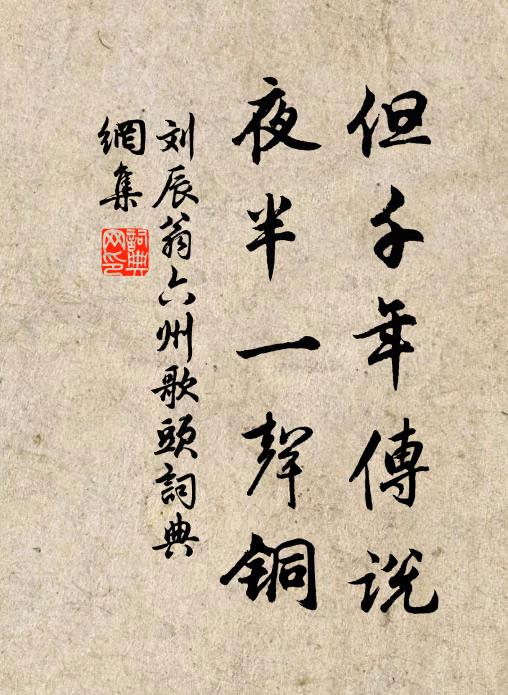 但千年傳説
夜半一聲銅
刘辰翁六州歌頭詞典
網集
詞典
网印